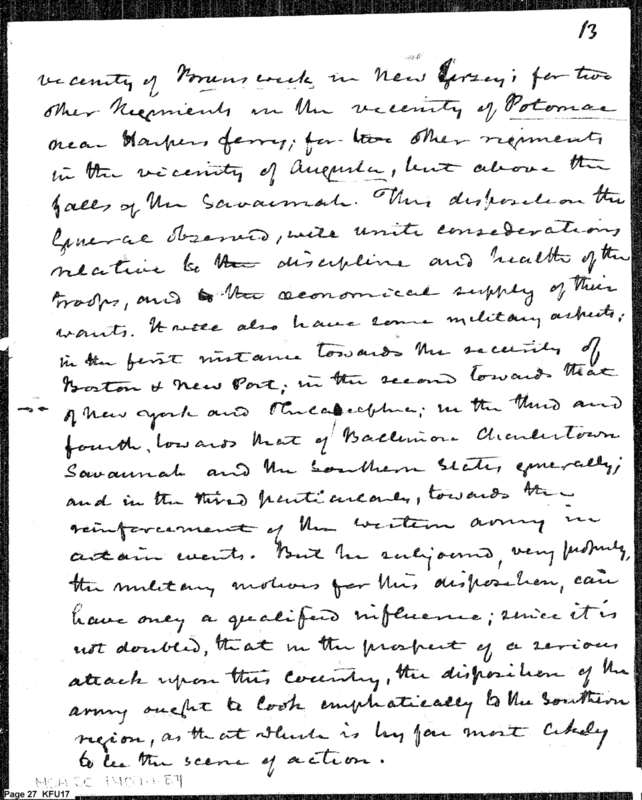 13
vicinity of Brunswick in New Jersey; for two
other Regiments in the vicinity of Potomac
near Harpers ferry; for two other regiments
in the vicinity of Augusta, but above the
falls of the Savannah. This disposition the
General observed, will unite considerations
relative to the discipline and health of the
troops, and to the œconomical supply of their
wants. It will also have some military aspects;
in the first instance towards the security of
Boston & New Port; in the second towards that
of New York and Philadelphia; in the third and
fourth, towards that of Baltimore Charlestown
Savannah and the Southern States generally;
and in the third particularly, towards the
reinforcement of the western army in
certain events. But he subjoined, very properly,
the military motives for this disposition, can
have only a qualified influence; since it is
not doubted, that in the prospect of a serious
attack upon this country, the disposition of the
army ought to look emphatically to the Southern
region, as that which is by far most likely
to be the scene of action.
Page 27 KFU17